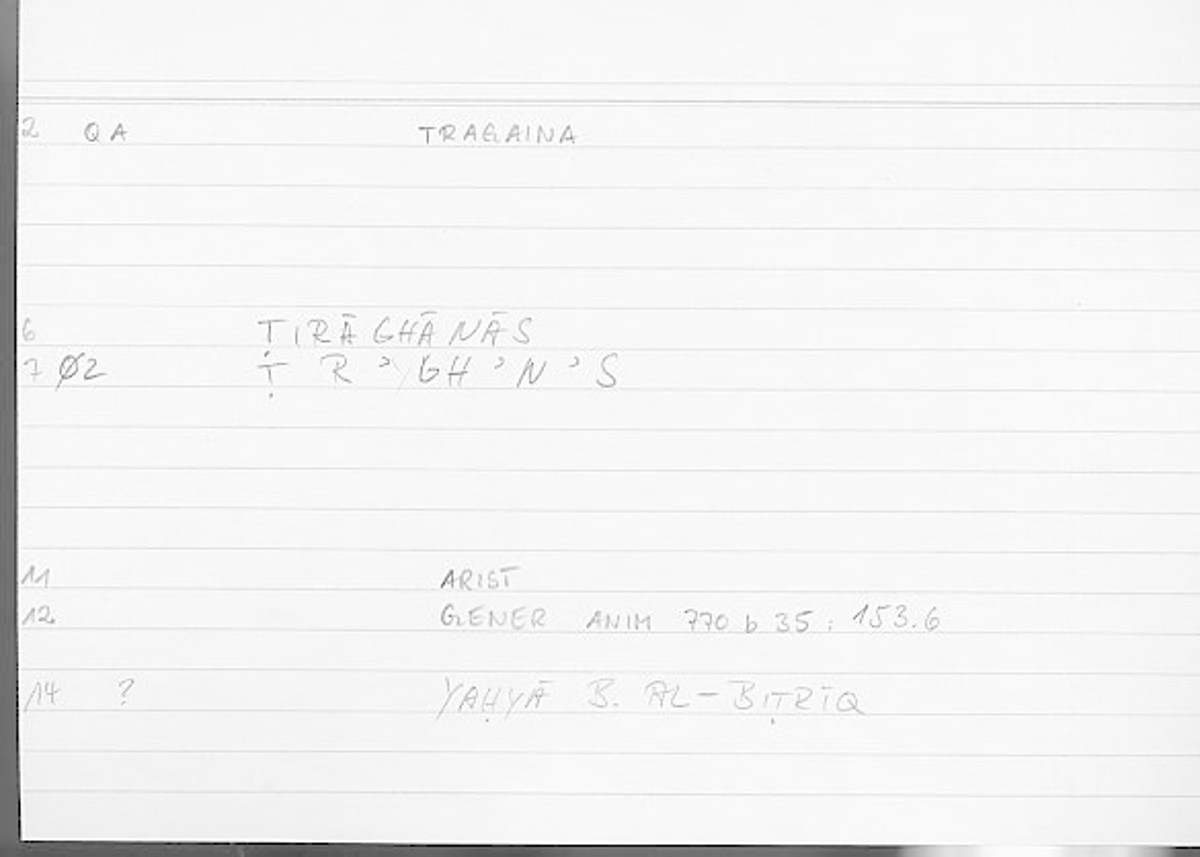 2 QA TRAGAINA
6 ṬIRĀGHĀNĀS
7 Ø2 Ṭ R ʾ GH ʾ N ʾ S
11 ARIST
12 GENER ANIM 770 b 35 : 153.6
14 ? YAḤYĀ B. AL-BIṬRĪQ